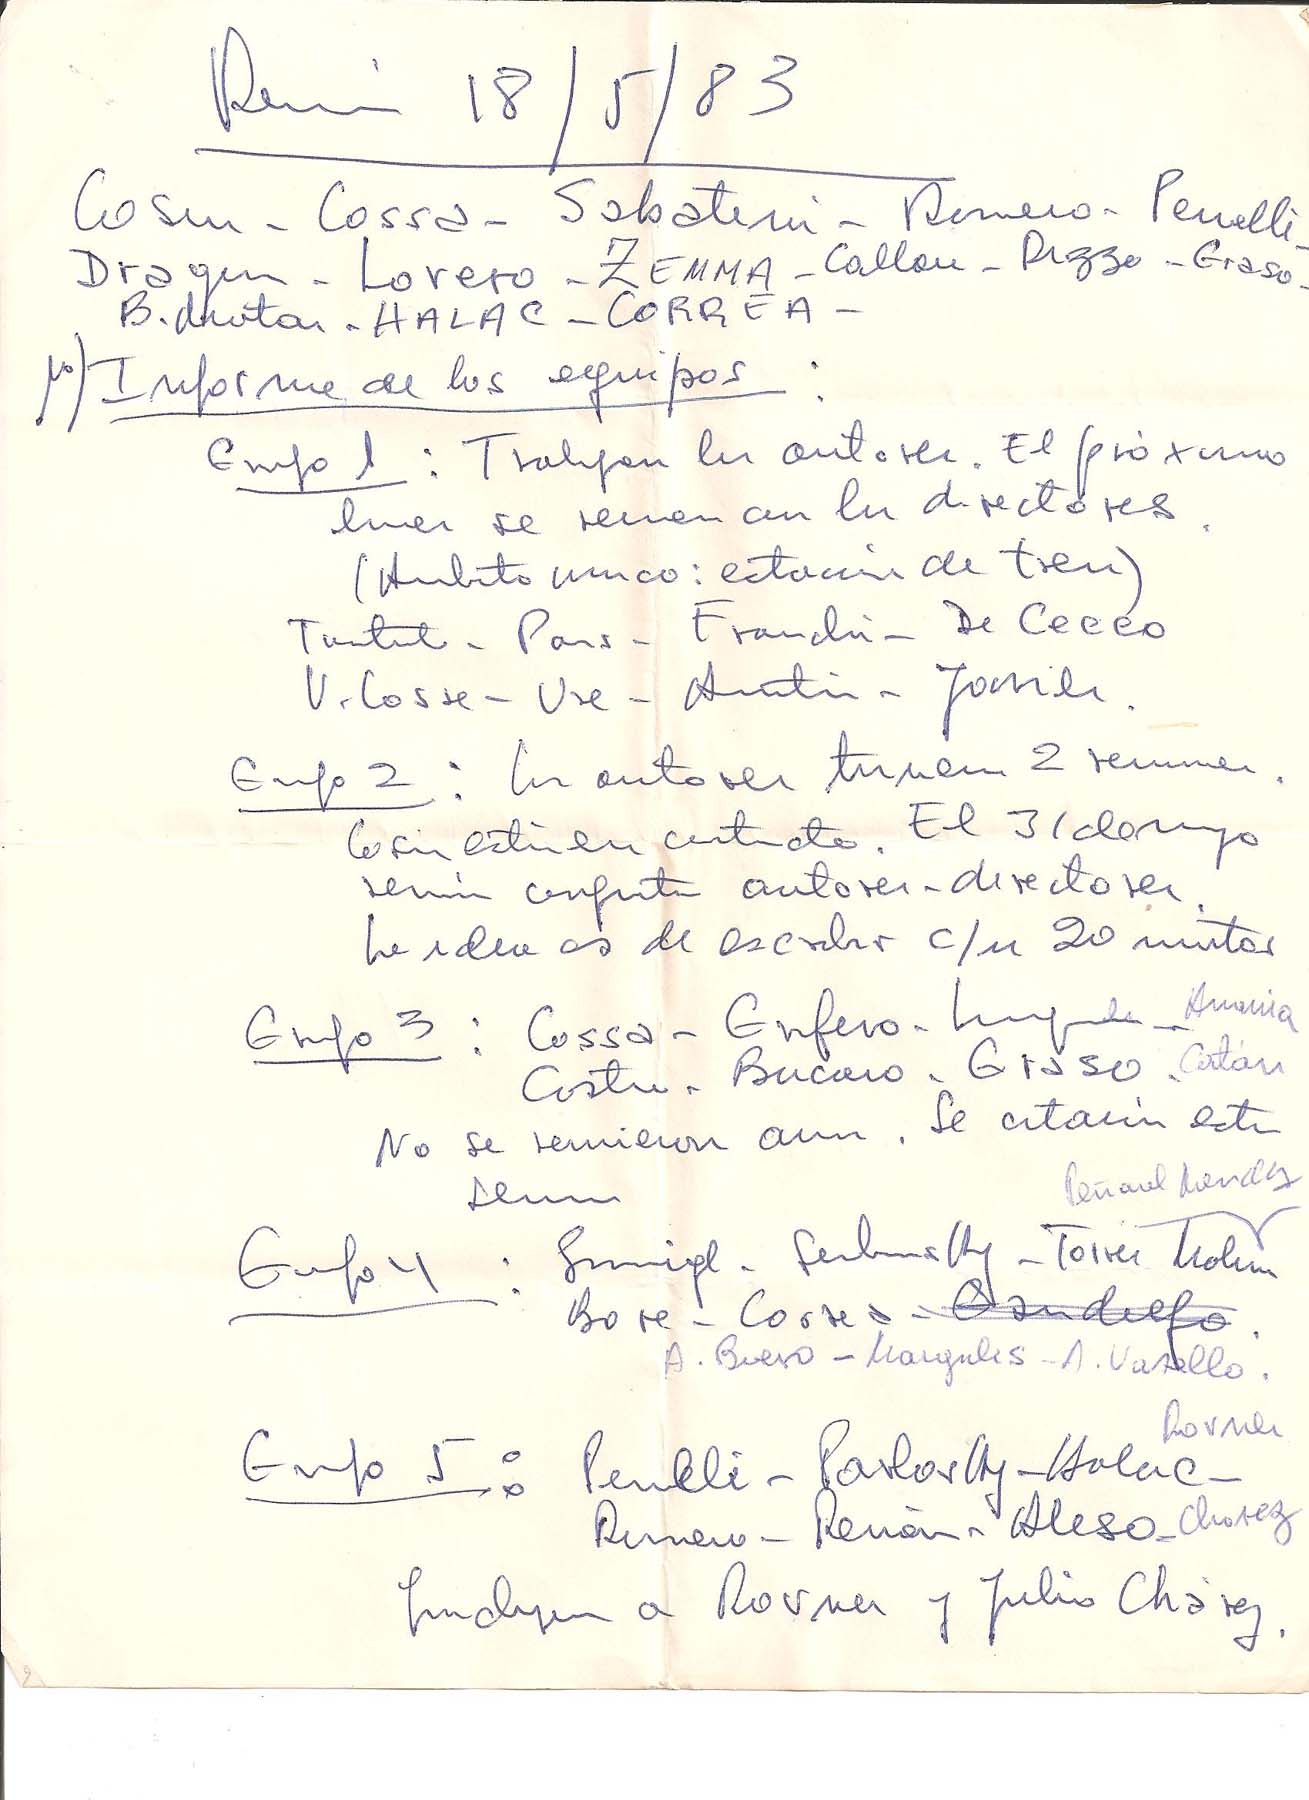 Reunión 18/5/83
Cosin - Cossa - Sabatini - Romero - Perinelli -
Dragún - Lovero - ZEMMA - Callau - Rizzo - Graso -
HALAC - CORREA -
1º) Informe de los equipos :
Grupo 1 : Trabajan los autores. El próximo
lunes se reunen con los directores.
(Ambito unico: estación de tren)
Pais - Franchi - De Cecco
V. Cosse - Use - Antin - Javier.
Grupo 2 : Los autores tuvieron 2 reuniones.
Cosin está en contacto. El 31 de mayo
reunión conjunta autores - directores.
La idea es de escribir c/u 20 minutos
Grupo 3 : Cossa - Gorfero - - Amania
Castro - Bucaro - Graso. Catán
No se reunieron aun. Se citarán esta
semana
Peñarol Mendez
Grupo 4 : - Serbrisky - Torres Molina
Bore - Correa - Gandolfo.
A. Buero - Margulis - A. Varello.
Rovner
Grupo 5 : Perinelli - Pavlovsky - Halac -
Romero - Renán - Aleso - Chavez
Incluyen a Rovner y Julio Chávez.